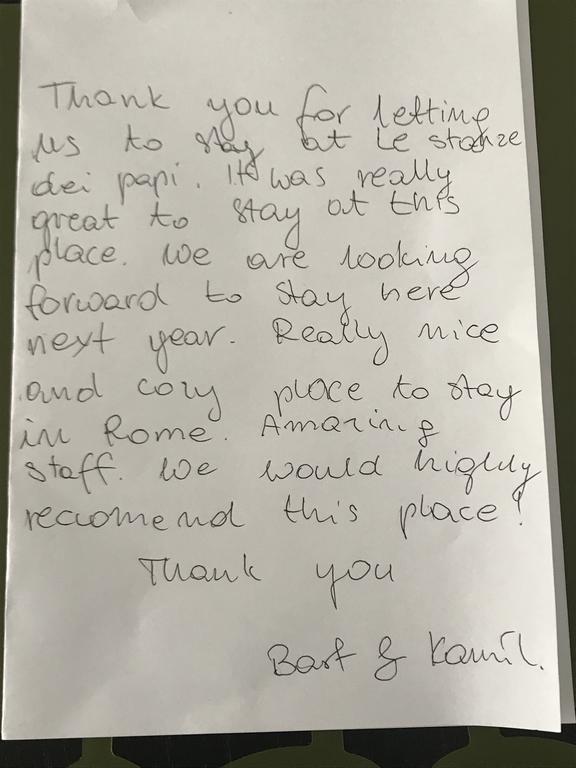 Thank you for letting
us to stay at Le stanze
dei papi. It was really
great to stay at this
place. We are looking
forward to stay here
next year. Really nice
and cozy place to stay
in Rome. Amazing
staff. We would highly
reccomend this place!
Thank you
Bart & Kamil.